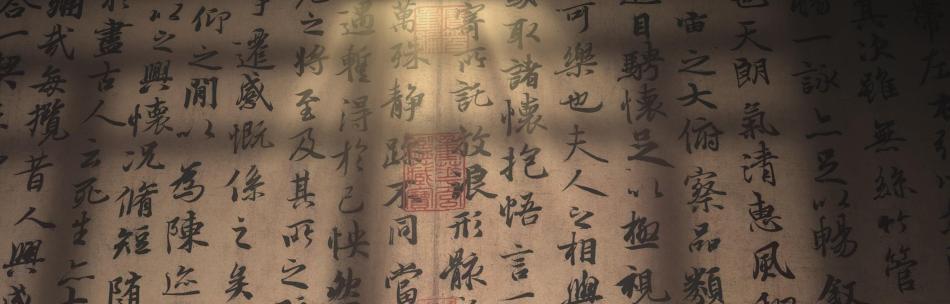 帶左
其次雖無絲竹管
觴一詠亦足以暢叙
也天朗氣清惠風
宙之大俯察品類
遊目騁懷足以極視
可樂也夫人之相與
或取諸懷抱悟言一
寄所託放浪形骸
萬殊静躁不同當
遇蹔得於己怏然
老之將至及其所之
事遷感慨係之矣
仰之閒以為陳迹
以之興懷況脩短隨
於盡古人云死生亦大
痛哉每攬昔人興感
合一契未